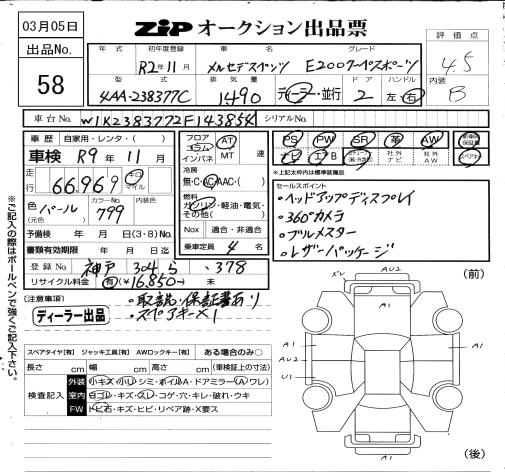 03月05日
出品No.
58
ZIP オークション出品票
評価点
4.5
内装
B
年式
初年度登録
車名
グレード
R2年11月
メルセデスベンツ
E200クーペスポーツ
型式
排気量
ドア
ハンドル
4AA-238377C
1490
ディーラー・並行
2
左・右
車台No.
W1K2383772F143854
シリアルNo.
車歴
自家用・レンタ・( )
車検 R9年11月
走行
66,969
キロ
マイル
色
パール
(元色)
カラーNo.
799
内装色
予備検 年 月 日(3・8)No.
書類有効期限 年 月 日迄
登録No.
神戸 304 ら ・378
リサイクル料金 有(¥16,850-) 未
フロア
コラム
インパネ
AT
MT
速
冷房
無・C・AC・AAC・( )
燃料
ガソリン・軽油・電気・
その他( )
Nox 適合・非適合
乗車定員 4 名
PS
PW
SR
革
AW
新車時保証書
ナビ
エアB
社外ナビ
社外AW
スペアキー
※上記太枠内は標準装備品
セールスポイント
・ヘッドアップディスプレイ
・360°カメラ
・ブルメスター
・レザーパッケージ
(注意事項)
・取説・保証書あり
・スペアキー×1
ディーラー出品
※ご記入の際はボールペンで強くご記入下さい。
スペアタイヤ【有】 ジャッキ工具【有】 AWロックキー【有】 ある場合のみ○
長さ cm 幅 cm 高さ cm (車検証上の寸法)
検査記入
外装 小キズ・小U・シミ・ボイルA・ドアミラー(A・ワレ)
室内 ヨゴレ・キズ・スレ・コゲ・穴・キレ・破れ・ウキ
FW トビ石・キズ・ヒビ・リペア跡・X要ス
(前)
AU2
A1
A1
A1
AU2
U1
A1
A1
(後)